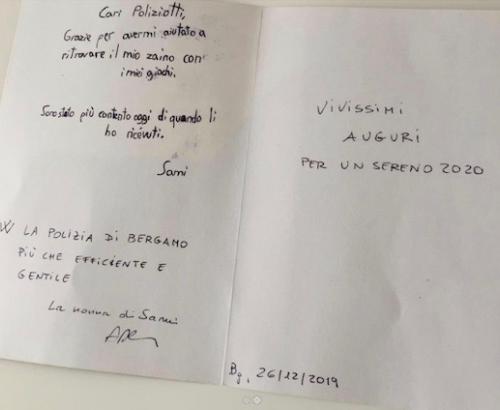 Cari Poliziotti,
Grazie per avermi aiutato a
ritrovare il mio zaino con
i miei giochi.
Sono stato più contento oggi di quando li
ho ricevuti.
Sami
W LA POLIZIA DI BERGAMO
PIÙ CHE EFFICIENTE E
GENTILE
La nonna di Sami
VIVISSIMI
AUGURI
PER UN SERENO 2020
Bg, 26/12/2019